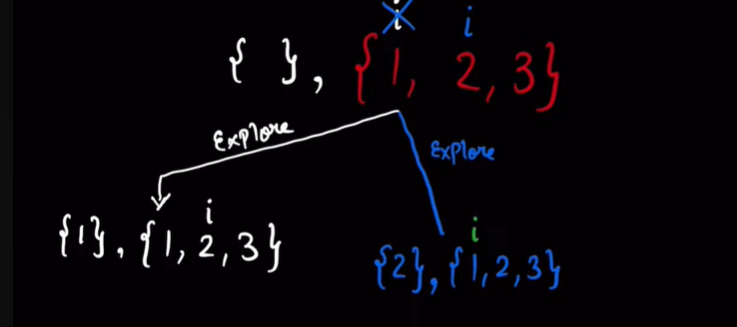 i i
{ }, {1, 2, 3}
Explore
Explore
i
{1}, {1, 2, 3}
i
{2}, {1, 2, 3}